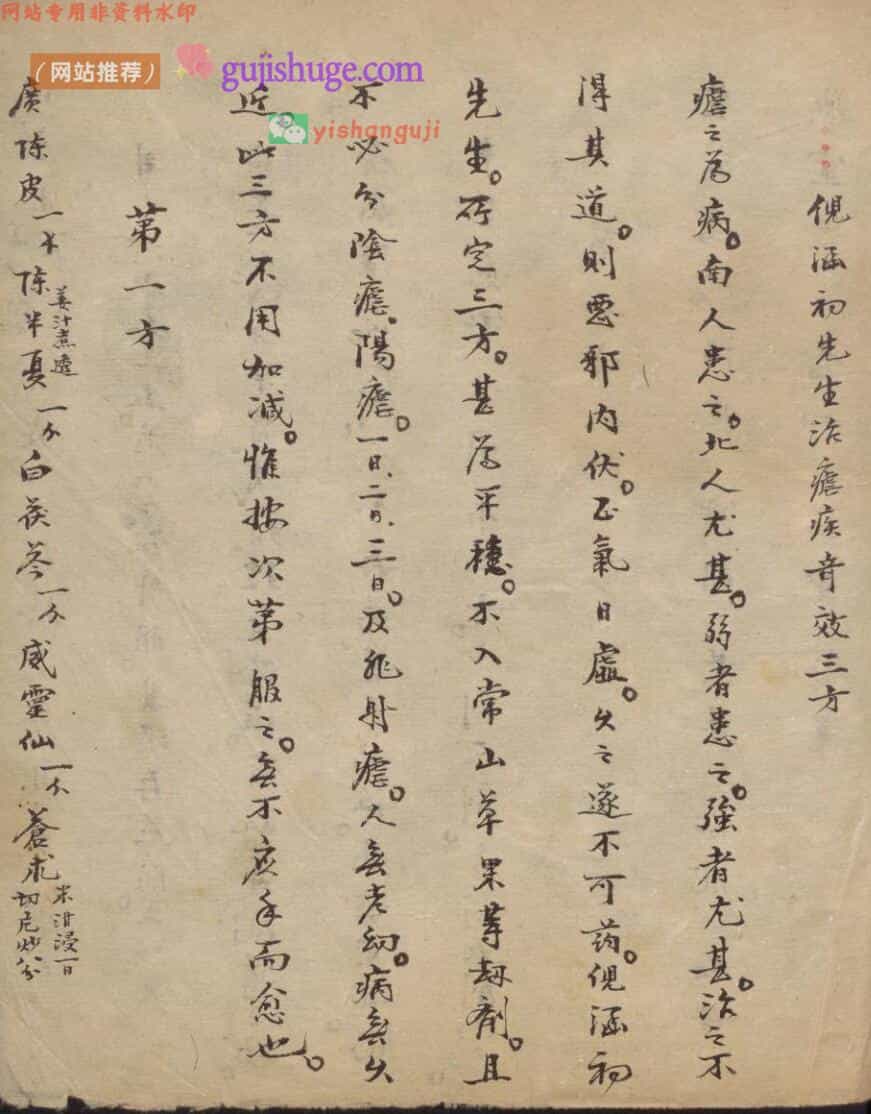 网站专用非资料水印
（网站推荐）
gujishuge.com
yishanguji
倪涵初先生治瘧疾竒效三方
瘧之為病。南人患之。北人尤甚。弱者患之。強者尤甚。治之不
得其道。則惡邪内伏。正氣日虛。久之遂不可药。倪涵初
先生。所定三方。甚為平穩。不入常山草果等劫劑。且
不必分陰瘧。陽瘧。一日、二日、三日。及非时瘧。人無老幼。病無久
近。此三方不用加减。惟按次第服之。無不应手而愈也。
第一方
廣陳皮 陳半夏姜汁煮透 白茯苓 威靈仙 蒼术米泔浸一日切片炒